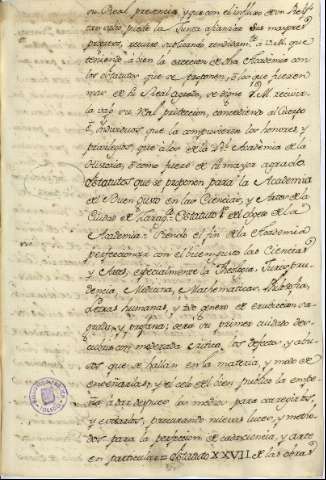 su Real presencia, y que con el influxo de un
tan sabio, puede la Junta afianzar sus mayores
progresos, recurre suplicando rendidam.te à V.M. que
teniendo à bien la ereccion de dha Academia con
los estatutos que se proponen, ò los que fueren
mas de su Real agrado, se digne V.M. recivir
la vajo su Real proteccion, concediendo al Cuerpo
è individuos que la compusieren los honores y
privilegios, que a los de la Rl. Academia de la
Historia, ò como fuere de su mayor agrado.
Estatutos que se proponen para la Academia
de Buen gusto en las Ciencias, y Artes de la
Ciudad de Zarag.za Estatuto 1.º del objeto de la
Academia = Siendo el fin de la Academia
perfeccionar con el buen gusto las Ciencias
y Artes, especialmente la Theologia, Jurispru
dencia, Medicina, Mathematicas, Philosofia,
Letras humanas, y todo genero de erudicion sa
grada, y profana; será su primer cuidado des
cubrir con moderada critica los defectos, y abu
sos que se hallan en la materia, y modo de
enseñarlas, y el celo del bien publico la empe
ñará à dar despues los medios para corregirlos,
y evitarlos, procurando nuevas luces, y meto
dos para la perfeccion de cada ciencia, y arte
en particular = Estatuto XXVII de las obras